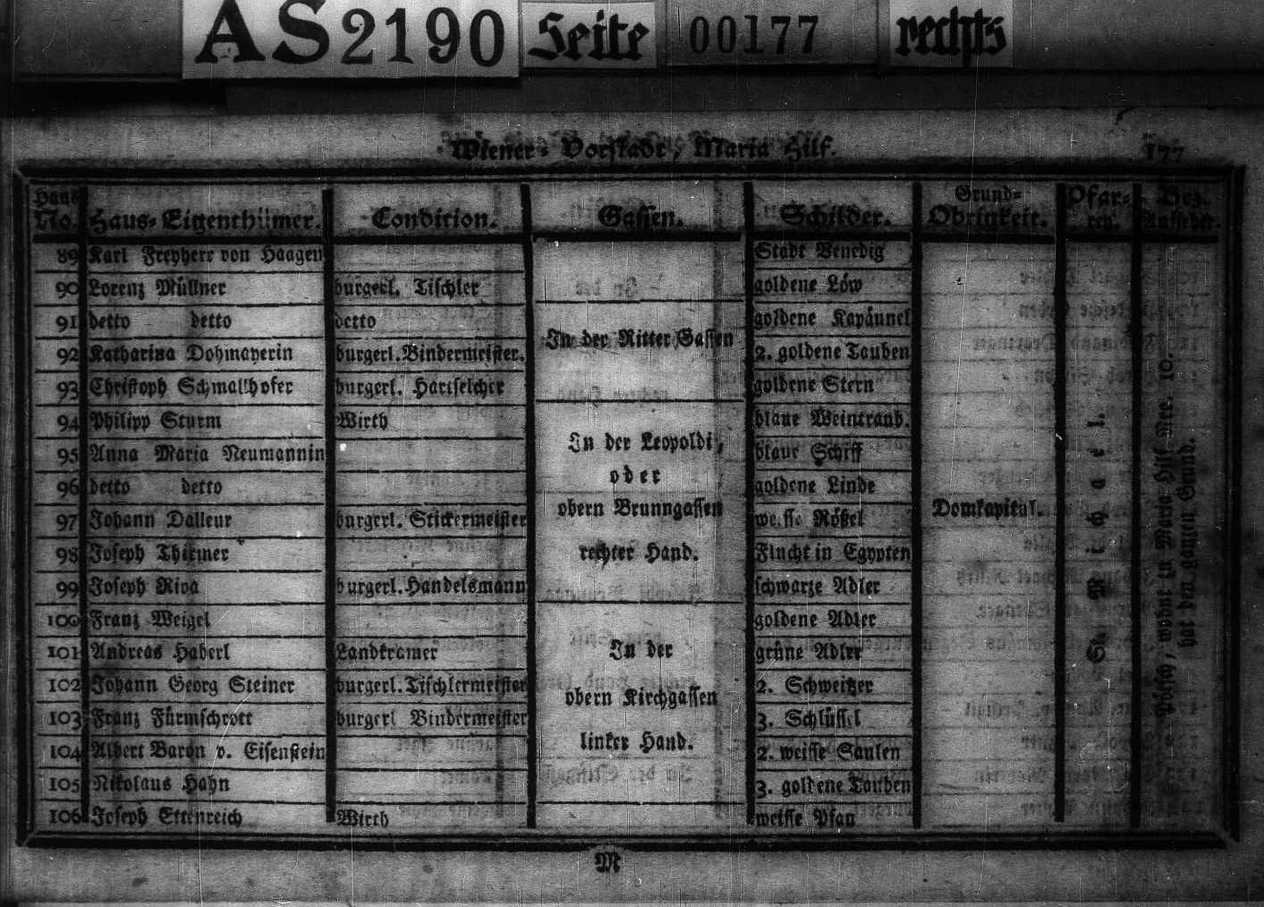 AS2190 Seite 00177 rechts
Wiener-Vorstadt, Maria Hilf. 177
Haus No. Haus-Eigenthümer. Condition. Gassen. Schilder. Grund-Obrigkeit. Pfar-ren. Bez. Aufseher.
89 Karl Freyherr von Haagen Stadt Venedig
90 Lorenz Müllner burgerl. Tischler goldene Löw
91 detto detto detto goldene Kapäunel
In der Ritter Gassen
92 Katharina Dohmayerin burgerl. Bindermeister. 2. goldene Tauben
93 Christoph Schmallhofer burgerl. goldene Stern
94 Philipp Sturm Wirth blaue Weintraub.
In der Leopoldi,
95 Anna Maria Neumannin blaue Schiff
oder
96 detto detto goldene Linde
obern Brunngassen Domkapitul.
97 Johann Dalleur burgerl. Stickermeister weisse Rössel
rechter Hand.
98 Joseph Thirmer Flucht in Egypten
99 Joseph Riva burgerl. Handelsmann schwarze Adler
100 Franz Weigel goldene Adler
In der
101 Andreas Haberl Landkramer grüne Adler
102 Johann Georg Steiner burgerl. Tischlermeister 2. Schweitzer
obern Kirchgassen
103 Franz Fürmschrott burgerl Bindermeister 3. Schlüssel
linker Hand.
104 Albert Baron v. Eisenstein 2. weisse Saulen
105 Nikolaus Hahn 3. goldene Tauben
106 Joseph Ettenreich Wirth weisse Pfan
St. Michael.
Pösch, wohnt in Maria Hilf Nro. 10.
hat den ganzen Grund.
M